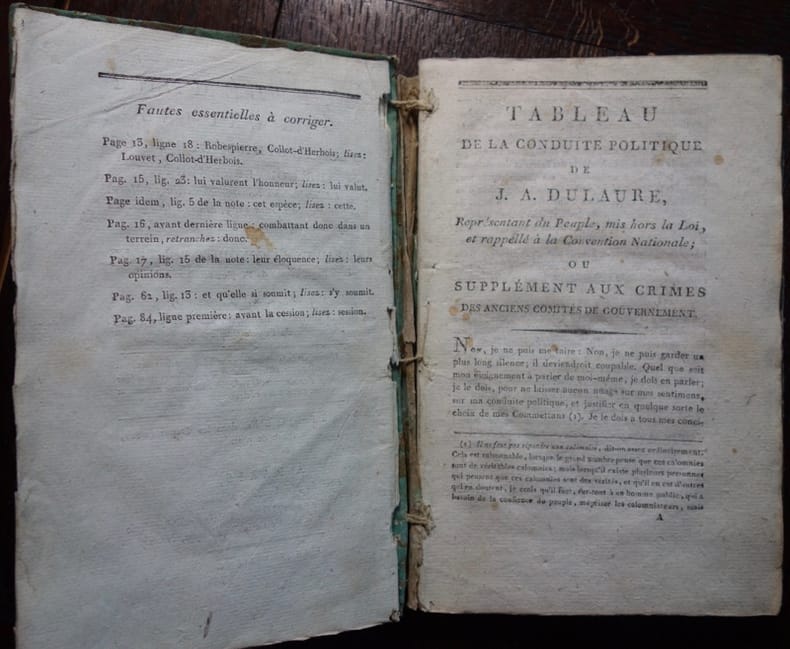 Fautes essentielles à corriger.
Page 13, ligne 18 : Robespierre, Collot-d'Herbois; lisez :
Louvet, Collot-d'Herbois.
Pag. 15, lig. 23: lui valurent l'honneur; lisez : lui valut.
Page idem, lig. 5 de la note : cet espèce; lisez : cette.
Pag. 16, avant dernière ligne : combattant donc dans un
terrein, retranchez : donc.
Pag. 17, lig. 15 de la note : leur éloquence; lisez : leurs
opinions.
Pag. 62, lig. 13 : et qu'elle si soumit; lisez : s'y soumit.
Pag. 84, ligne première : avant la cession; lisez : session.
TABLEAU
DE LA CONDUITE POLITIQUE
DE
J. A. DULAURE,
Représentant du Peuple, mis hors la Loi,
et rappellé à la Convention Nationale;
OU
SUPPLÉMENT AUX CRIMES
DES ANCIENS COMITÉS DE GOUVERNEMENT.
Non, je ne puis me taire : Non, je ne puis garder un
plus long silence; il deviendroit coupable. Quel que soit
mon éloignement à parler de moi-même, je dois en parler;
je le dois, pour ne laisser aucun nuage sur mes sentimens,
sur ma conduite politique, et justifier en quelque sorte le
choix de mes Commettans (1). Je le dois à tous mes conci-
(1) Il ne faut pas répondre aux calomnies, dit-on assez ordinairement.
Cela est raisonnable, lorsque le grand nombre pense que ces calomnies
sont de véritables calomnies; mais lorsqu'il existe plusieurs personnes
qui pensent que ces calomnies sont des vérités, et qu'il en est d'autres
qui en doutent, je crois qu'il faut, à un homme public, qui a
besoin de la confiance du peuple, mépriser les calomniateurs, mais
A